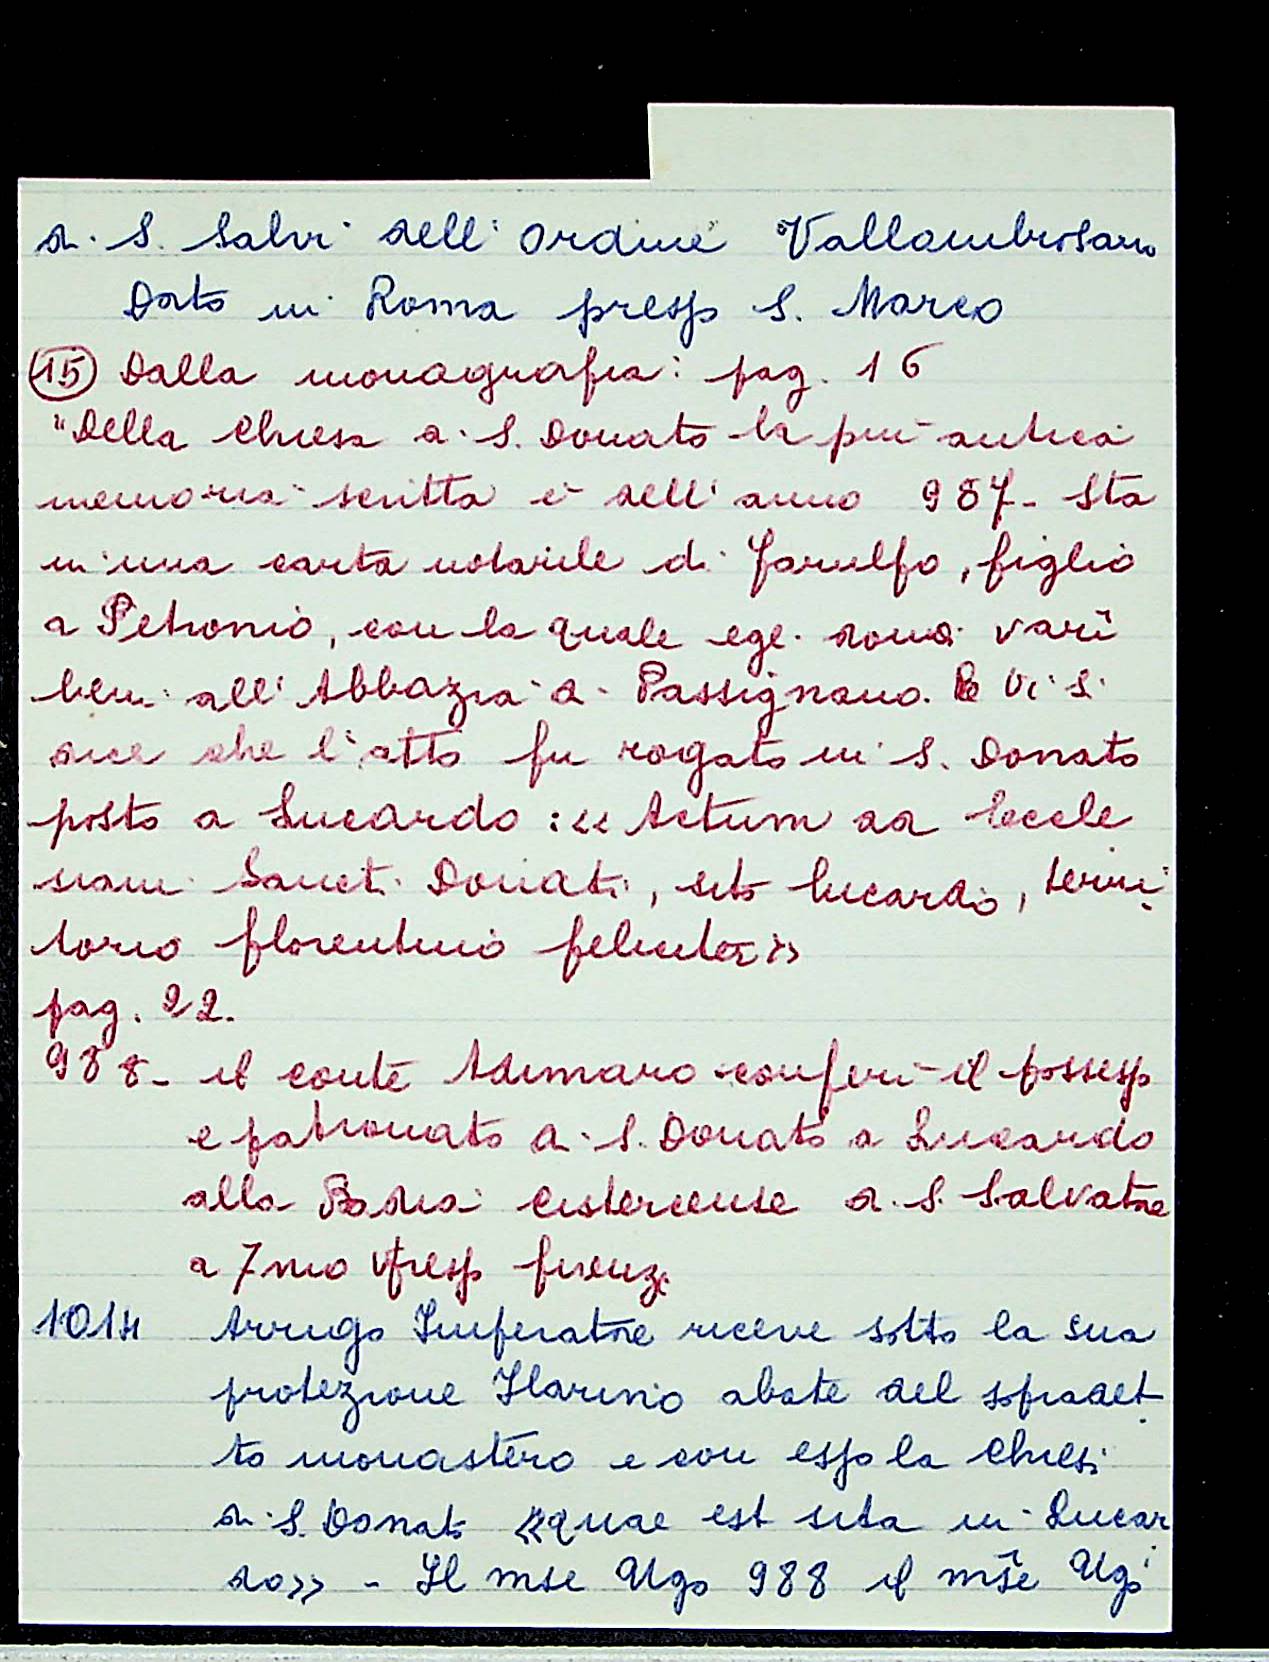 di S. Salvi dell'ordine Vallambrosano
Dato in Roma presso S. Marco
(15) Dalla monagrafia: pag. 16
"Della Chiesa di S. Donato la più antica
memoria scritta è dell'anno 987- Sta
in una carta notarile di farulfo, figlio
di Petronio, con la quale egli dona varî
beni all'Abbazia di Passignano. Vi si
dice che l'atto fu rogato in S. Donato
posto a Lucardo: «Actum ad Eccle
siam Sancti Donati, sito lucardo, terri
torio florentino feliciter»
pag. 22.
988- il conte Adimaro conferì il possesso
e patronato di S. Donato a Lucardo
alla Badia cistercense di S. Salvatore
a 7mo presso firenze
1014 Arrigo Imperatore riceve sotto la sua
protezione Ilarino abate del sopradet
to monastero e con esso la Chiesi
di S. Donato «quae est sita in Lucar
do» - Il mse Ugo 988 il mse Ugo